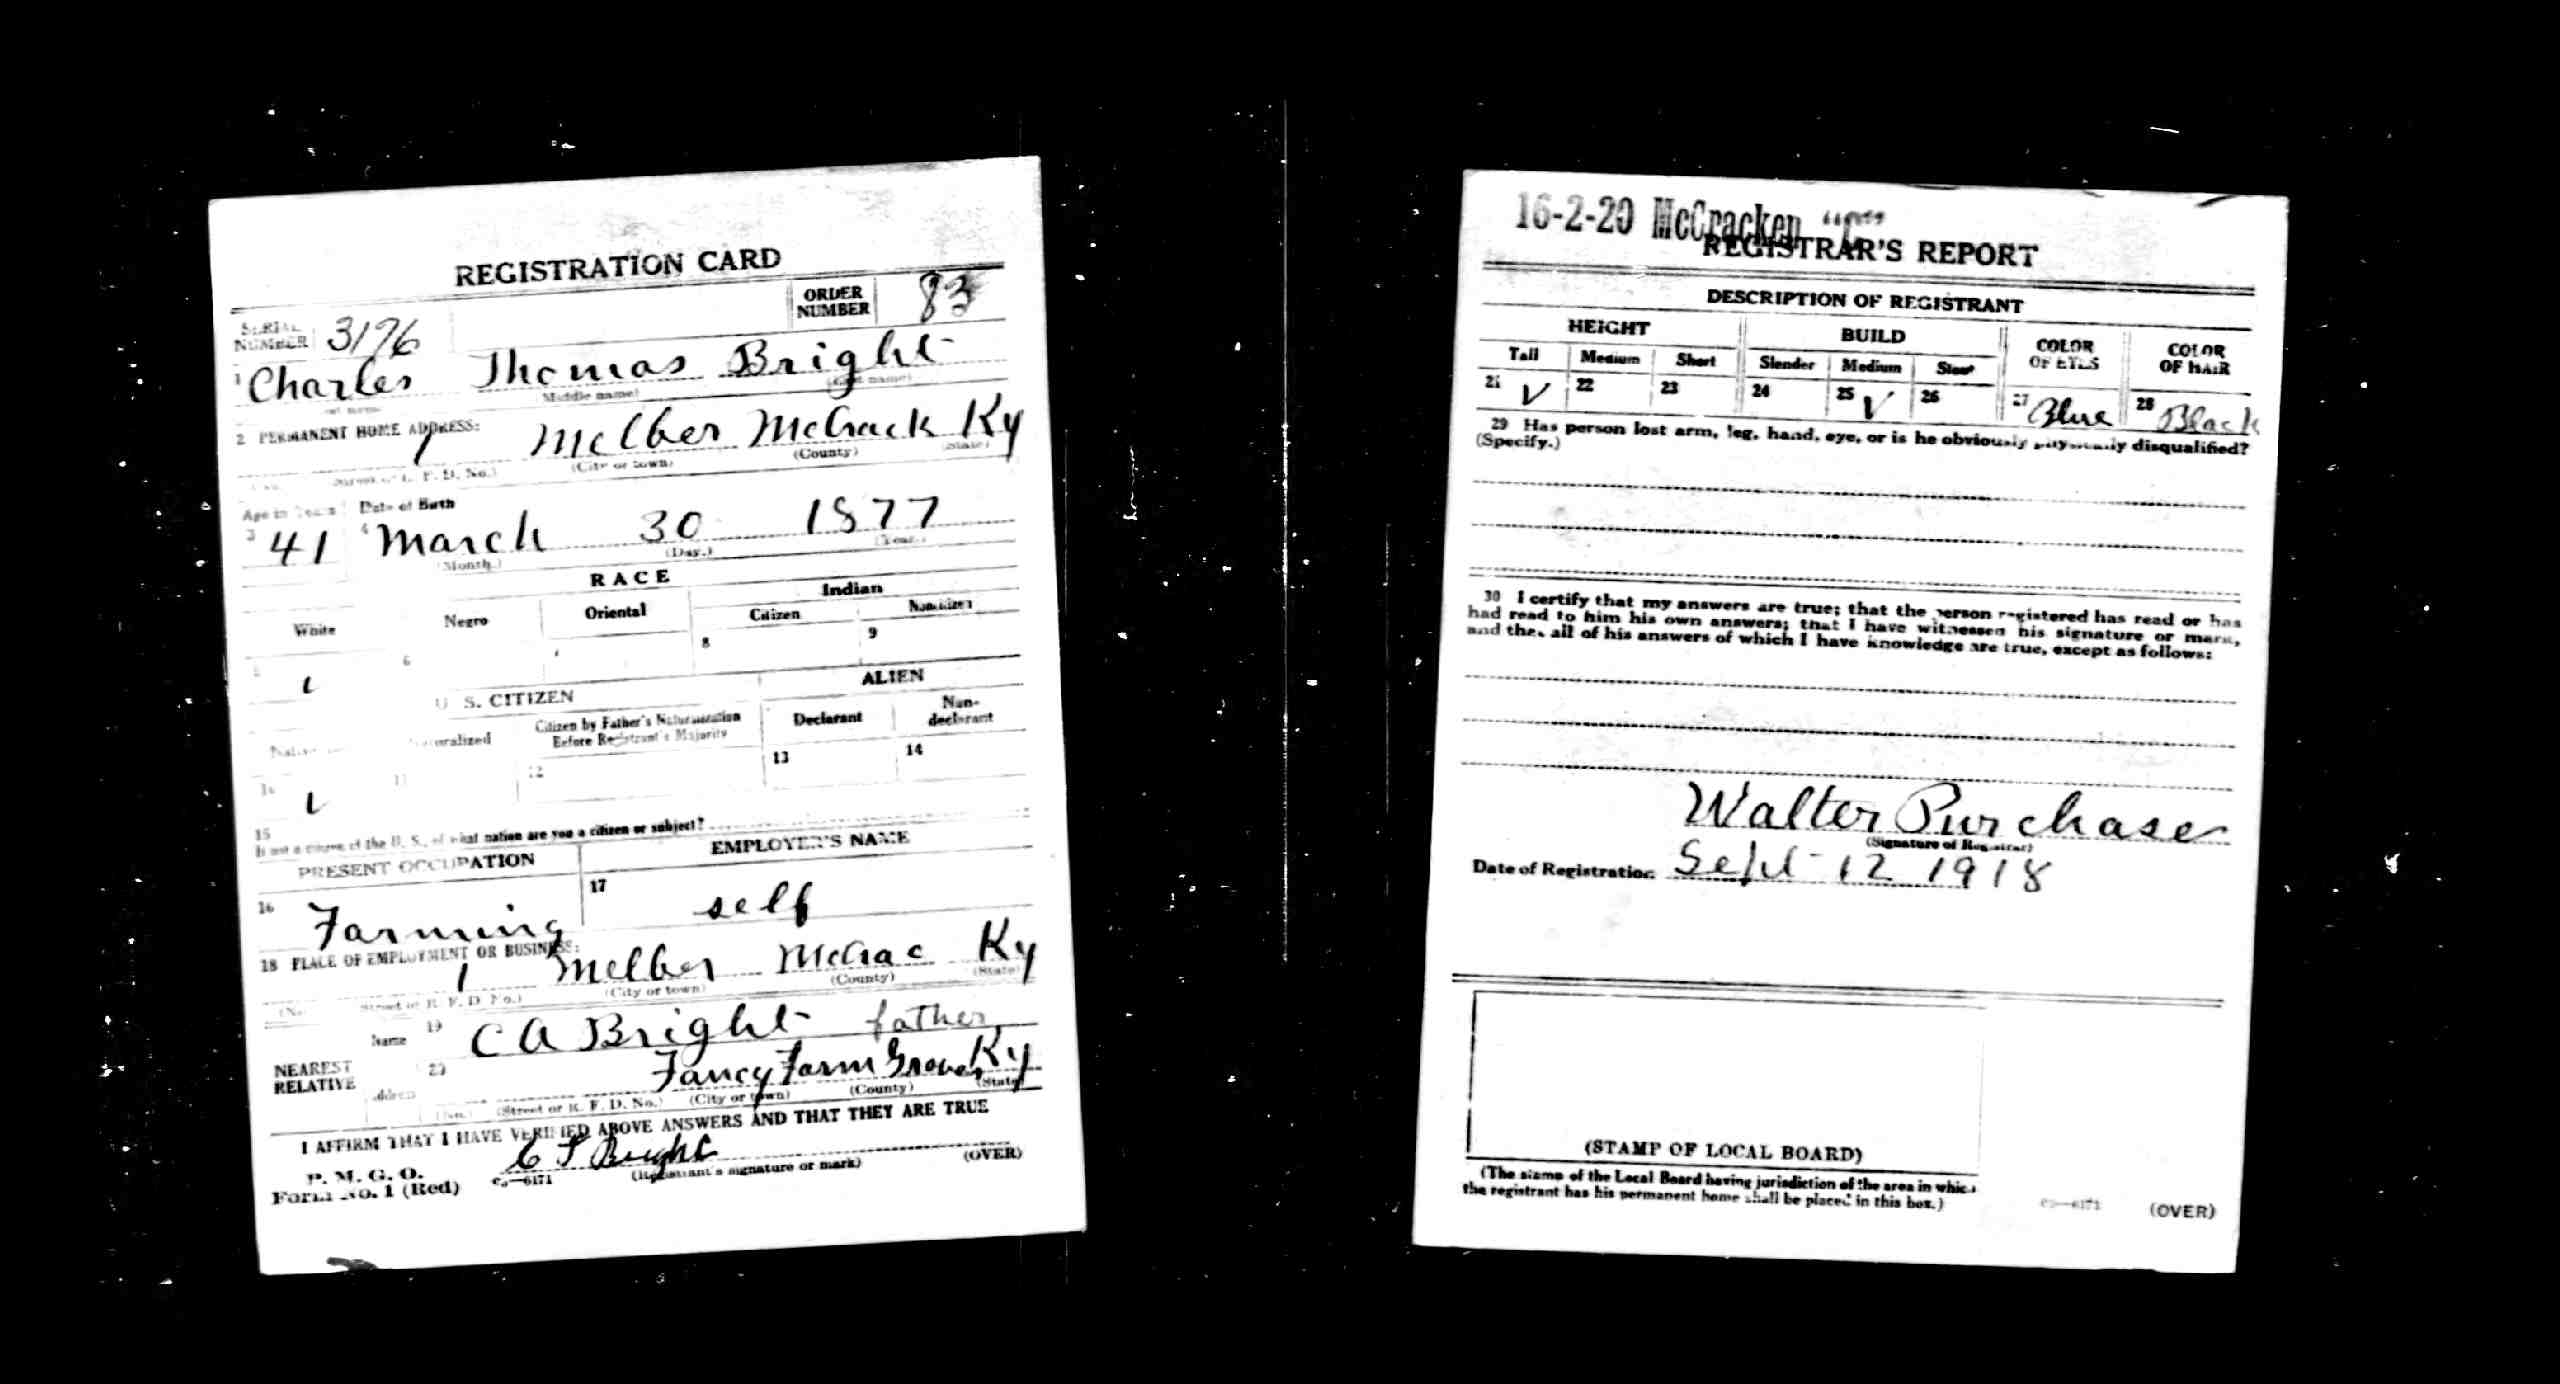 REGISTRATION CARD
SERIAL NUMBER 3176 ORDER NUMBER 83
1 Charles Thomas Bright
(Middle name) (Last name)
2 PERMANENT HOME ADDRESS:
1 Melber McCrack Ky
(City or town) (County) (State)
Age in Years Date of Birth
3 41 4 March 30 1877
(Month.) (Day.) (Year.)
RACE
White Negro Oriental Indian
Citizen Noncitizen
6 8 9
U. S. CITIZEN ALIEN
Naturalized Citizen by Father's Naturalization Before Registrant's Majority Declarant Non-declarant
11 12 13 14
15
If not a citizen of the U. S., of what nation are you a citizen or subject?
PRESENT OCCUPATION EMPLOYER'S NAME
16 Farming 17 self
18 PLACE OF EMPLOYMENT OR BUSINESS:
1 Melber McCrac Ky
(No.) (Street or R. F. D. No.) (City or town) (County) (State)
NEAREST RELATIVE
Name 19 C A Bright father
Address 20 Fancy Farm Graves Ky
(No.) (Street or R. F. D. No.) (City or town) (County) (State)
I AFFIRM THAT I HAVE VERIFIED ABOVE ANSWERS AND THAT THEY ARE TRUE
P. M. G. O.
Form No. 1 (Red)
C T Bright
(Registrant's signature or mark) (OVER)
16-2-20 McCracken "C"
REGISTRAR'S REPORT
DESCRIPTION OF REGISTRANT
HEIGHT BUILD COLOR OF EYES COLOR OF HAIR
Tall Medium Short Slender Medium Stout
21 ✓ 22 23 24 25 ✓ 26 27 Blue 28 Black
29 Has person lost arm, leg, hand, eye, or is he obviously physically disqualified?
(Specify.)
30 I certify that my answers are true; that the person registered has read or has
had read to him his own answers; that I have witnessed his signature or mark,
and that all of his answers of which I have knowledge are true, except as follows:
Walter Purchase
(Signature of Registrar)
Date of Registration Sept-12 1918
(STAMP OF LOCAL BOARD)
(The stamp of the Local Board having jurisdiction of the area in which
the registrant has his permanent home shall be placed in this box.)
(OVER)